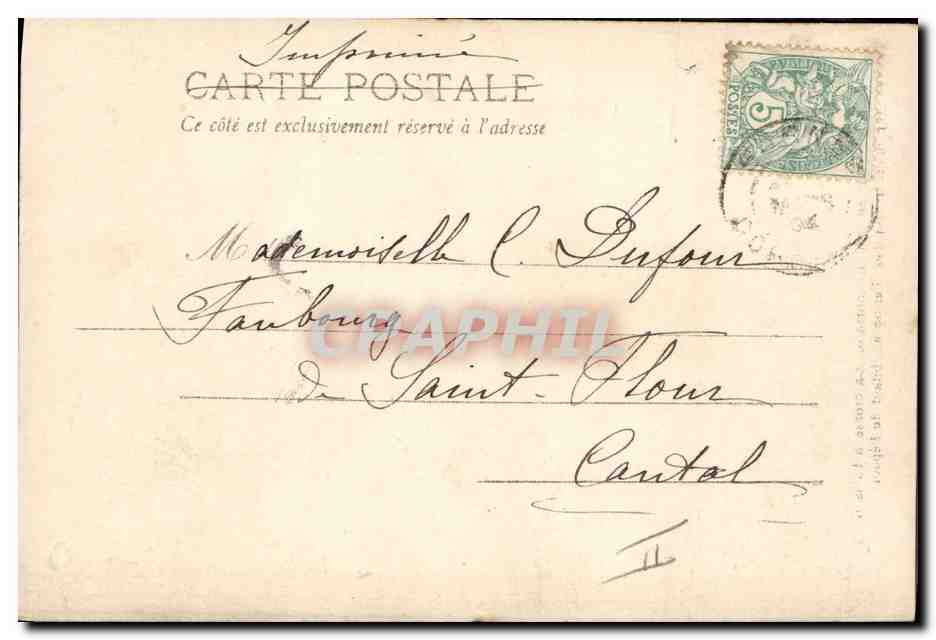 Imprimé
CARTE POSTALE
Ce côté est exclusivement réservé à l'adresse
5
POSTES
Mademoiselle C. Dufour
Faubourg
CPAPHIL
de Saint-Flour
Cantal
II